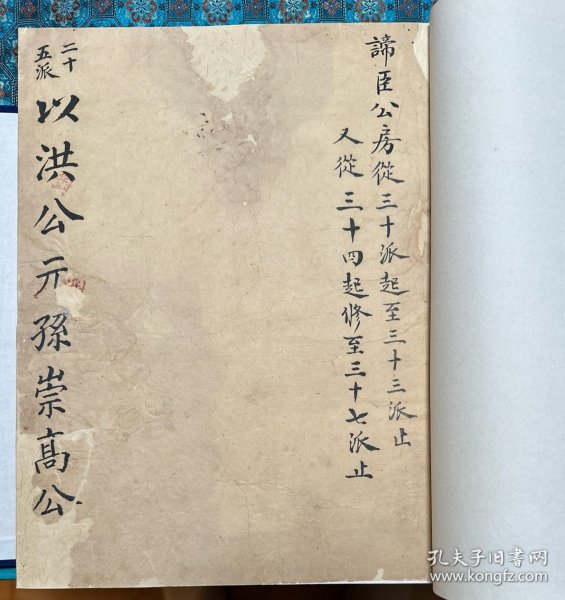 諦臣公房從三十派起至三十三派止
又從三十四起修至三十七派止
二十五派
以洪公亓孫崇高公
孔夫子旧书网
www.kongfz.com